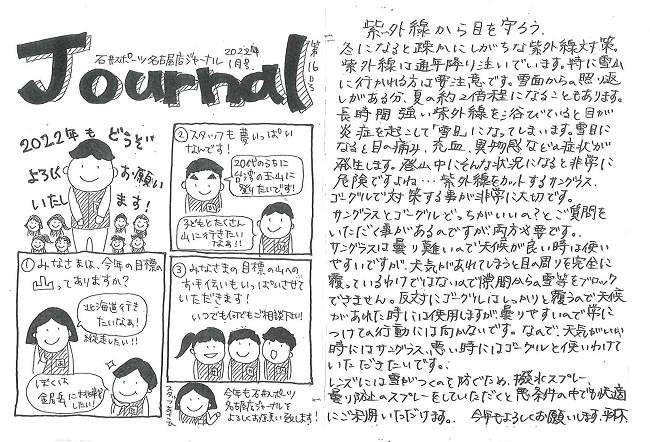 石井スポーツ名古屋店ジャーナル
2022年
1月号
第
16
号
Journal
2022年も どうぞ
よろしく お願い
いたし ます!
① みなさまは、今年の目標の
山ってありますか?
北海道行き
たいなぁ!
縦走したい!!
ぼくは
したい!
② スタッフも夢いっぱい
なんです!
20代のうちに
台湾の玉山に
登りたいです!
子どもとたくさん
山に行きたい
なぁ!!
③ みなさまの目標の山への
お手伝いもいっぱいさせて
いただきます!
いつでも何でもご相談下さい!
今年も石井スポーツ
名古屋店ジャーナルを
よろしくお願い致します!
紫外線から目を守ろう。
冬になると疎かにしがちな紫外線対策。
紫外線は通年降り注いでいます。特に雪山
に行かれる方は要注意です。雪面からの照り返
しがある分、夏の約2倍程になることもあります。
長時間強い紫外線を浴びていると目が
炎症を起こして「雪目」になってしまいます。雪目に
なると目の痛み、充血、異物感などの症状が
発生します。登山中にそんな状況になると非常に
危険ですよね… 紫外線をカットするサングラス、
ゴーグルで対策する事が非常に大切です。
サングラスとゴーグルどっちがいいの?とご質問を
いただく事があるのですが両方必要です。
サングラスは曇り難いので天候が良い時は使い
やすいですが、天気があれてしまうと目の周りを完全に
覆っているわけではないので隙間からの雪等をブロック
できません。反対にゴーグルはしっかりと覆うので天候
があれた時には使用しますが、曇りやすいので常に
つけての行動には向かないです。なので、天気がいい
時にはサングラス、悪い時にはゴーグルと使いわけて
いただきたいです。
レンズには雪がつくのを防ぐため、撥水スプレー、
曇り防止のスプレーをしていただくと悪条件の中でも快適
にご利用いただけます。 今年もよろしくお願いします。